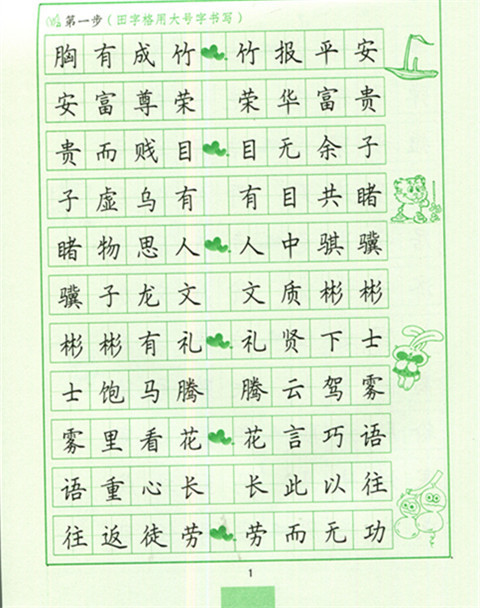 第一步（田字格用大号字书写）
胸有成竹 竹报平安
安富尊荣 荣华富贵
贵而贱目 目无余子
子虚乌有 有目共睹
睹物思人 人中骐骥
骥子龙文 文质彬彬
彬彬有礼 礼贤下士
士饱马腾 腾云驾雾
雾里看花 花言巧语
语重心长 长此以往
往返徒劳 劳而无功
1